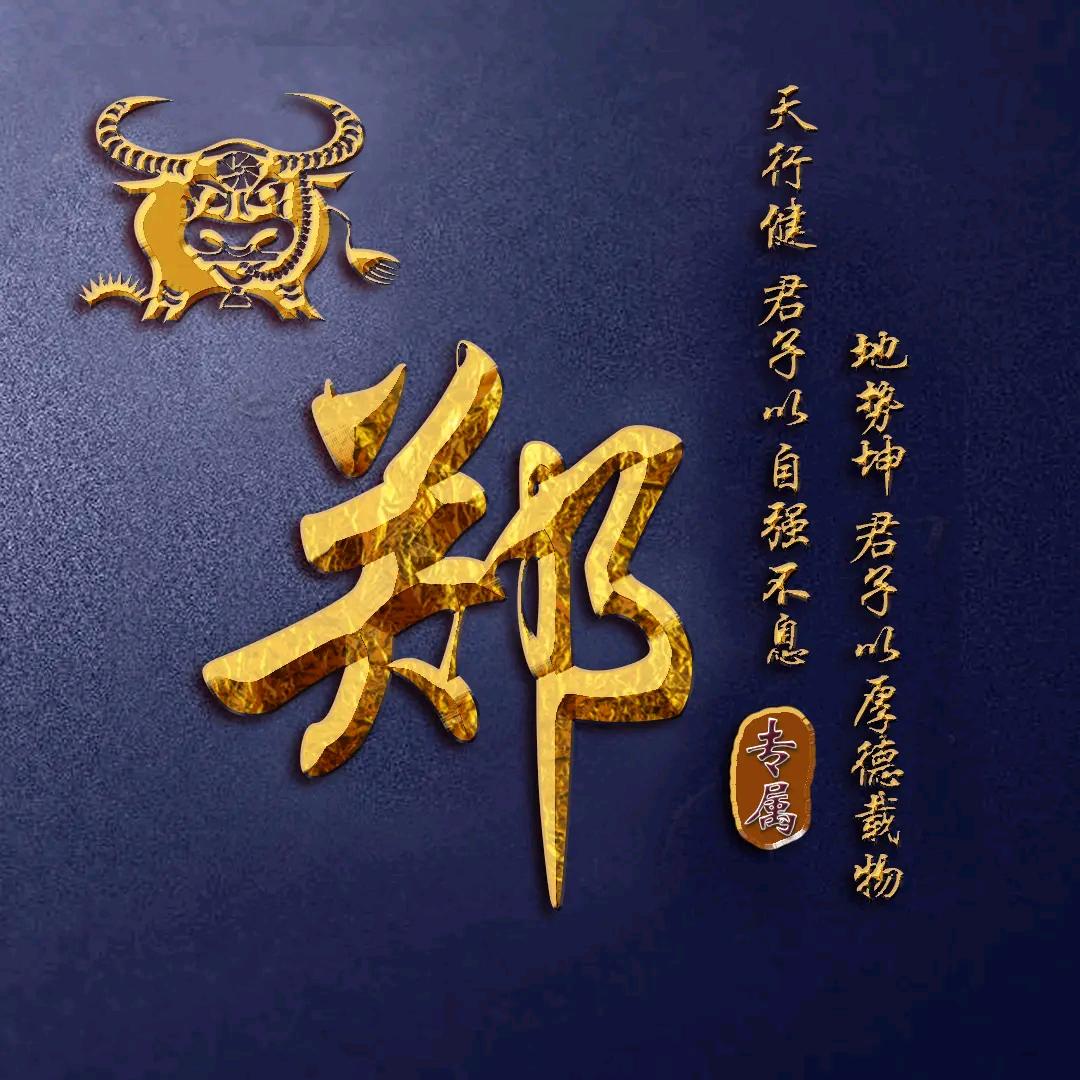 郑
天行健 君子以自强不息
地势坤 君子以厚德载物
专属